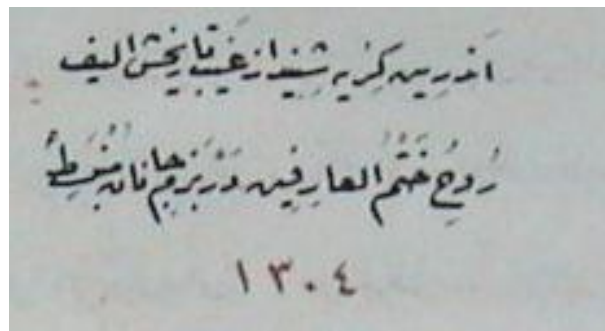 اندرین گریه شنید از غیب تاریخش الیف
رُوحِ خَتْمُ العارِفین دَرْ بَزْمِ جانان مُنْبَسِطْ
١٣٠٤